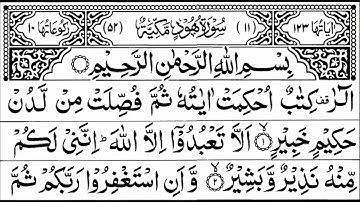 اٰيَاتُهَا ١٢٣ (١١) سُوْرَةُ هُوْدٍ مَكِّيَّةٌ (٥٢) رُكُوْعَاتُهَا ١٠
بِسْمِ اللّٰهِ الرَّحْمٰنِ الرَّحِيْمِ
الٓرٰ قف كِتٰبٌ اُحْكِمَتْ اٰيٰتُهٗ ثُمَّ فُصِّلَتْ مِنْ لَّدُنْ
حَكِيْمٍ خَبِيْرٍ ۙ﴿١﴾ اَلَّا تَعْبُدُوْۤا اِلَّا اللّٰهَ ؕ اِنَّنِيْ لَكُمْ
مِّنْهُ نَذِيْرٌ وَّبَشِيْرٌ ۙ﴿٢﴾ وَّاَنِ اسْتَغْفِرُوْا رَبَّكُمْ ثُمَّ